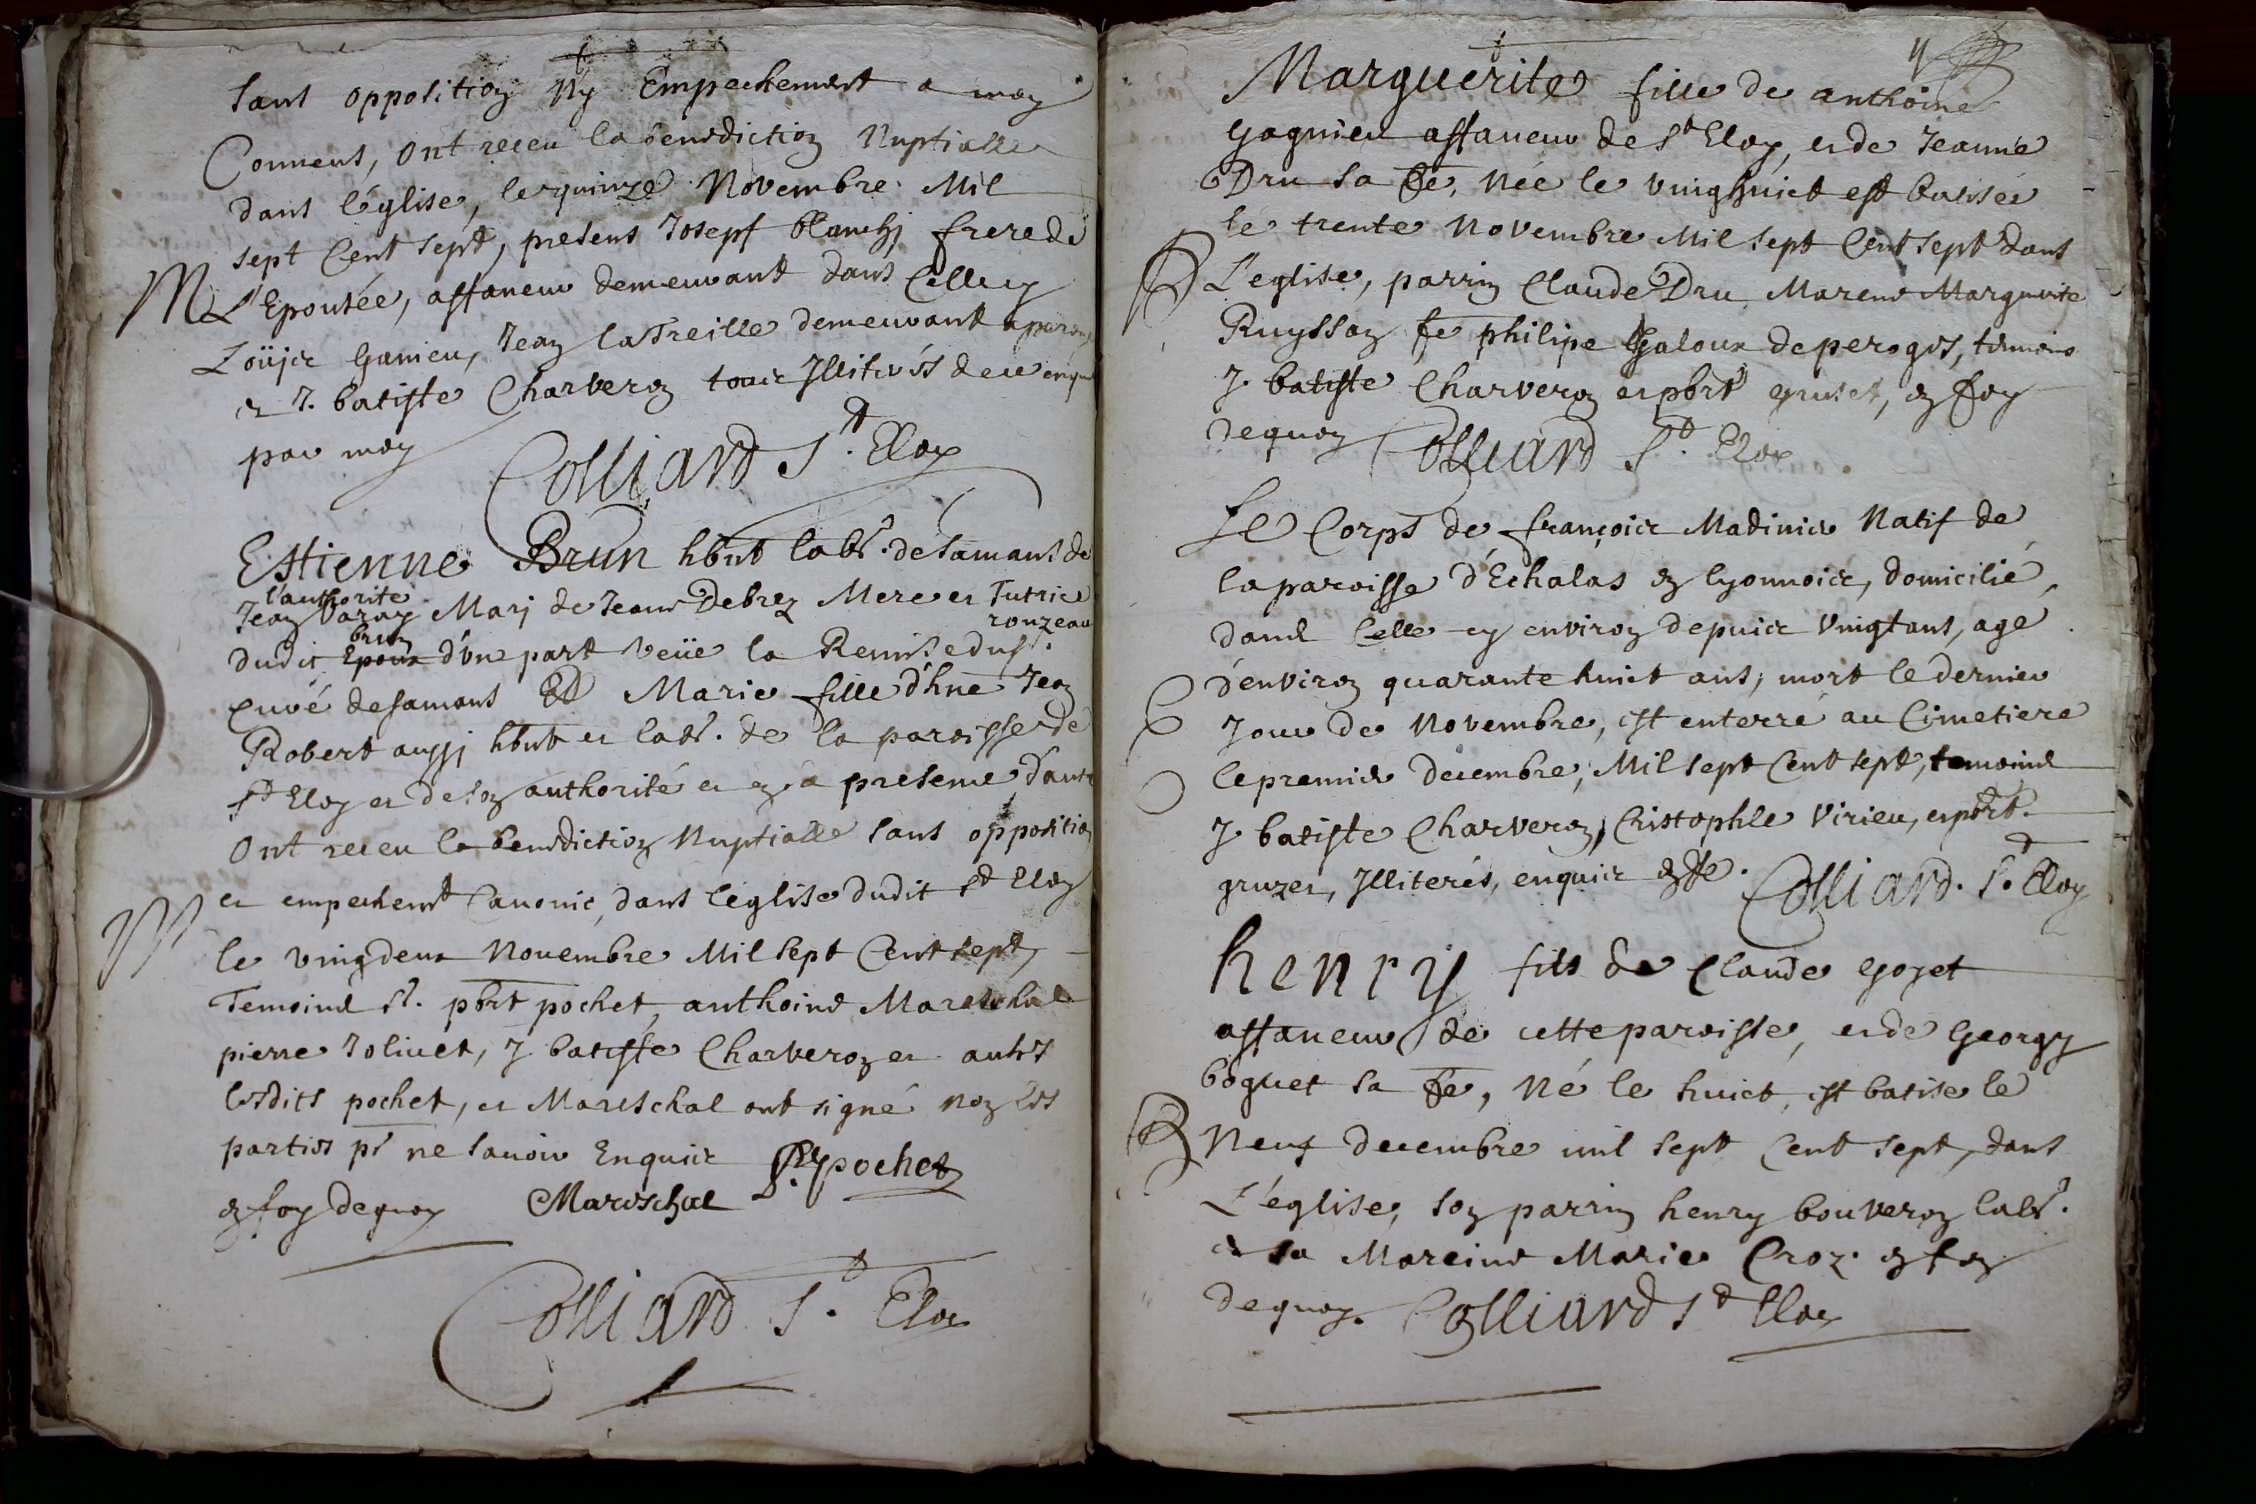 sans opposition Ny Empechement a moy
Connens, ont receu la benediction Nuptialle
dans l'église, le quinze Novembre Mil
sept Cent sept, presens Josepf blanchj frere de
M
L'Epousée, affaneur demeurant dans Celle cy
Loüjs Ganieu, Jean laTreille demeurant a perouge
et J. batiste Charveron tous Jlliterés de ce enquis
par moy
Colliard St. Eloy
Estienne Brun hbnt labr. de samans de
l'authorite
Jean Varay Marj de Jeane Debrez Mere et Tutrice
brun rouzeau
dudit Epoux d'une part veüe la Remise du sr.
Curé de samans Et Marie fille d'hne Jean
Robert aussj hbnt et labr. de la paroisse de
St Eloy et de son authorité et en sa presence d'autre
Ont receu la benediction Nuptialle sans opposition
M
et empechemt Canonic, dans l'eglise dudit St Eloy
le vingdeux Novembre Mil sept Cent sept,
Temoins sr. pbrt pochet, anthoine Mareschal
pierre Jolivet, J batiste Charveron et autrs
lesdits pochet, et Mareschal ont signé non les
parties pr ne savoir Enquis
en foy de quoy Mareschal pochet
Colliard St. Eloy
Marguerite fille de anthoine
gagnieu affaneur de St Eloy, et de Jeanne
Dru sa fe, Née le vinghuict est batisée
le trente Novembre Mil sept Cent sept dans
B
L'eglise, parrin Claude Dru Marene Marguerite
Ruysson fe philipe galoux de peroges, temoins
J batiste Charveron et pbrt gruset, en foy
de quoy Colliard St. Eloy
Le Corps de françois Madinier Natif de
la paroisse d'Echalas en lyonnois, domicilié
dans Celle-cy environ depuis vingt ans, agé
d'environ quarante huict ans, mort le dernier
jour de Novembre, est enterré au Cimetiere
le premier decembre, Mil sept Cent sept, temoins
J batiste Charveron, Cristophle Virieu, et pbrt.
gruzet, Jlliterés, enquis en fe. Colliard. St. Eloy
henry fils de Claude goyet
affaneur de cette paroisse, et de Georgy
boguet sa fe, Né le huict, est batise le
B
Neuf decembre mil sept Cent sept, dans
L'eglise, son parrin henry bouveron labr.
et sa Mareine Marie Croz. en foy
de quoy. Colliard St Eloy